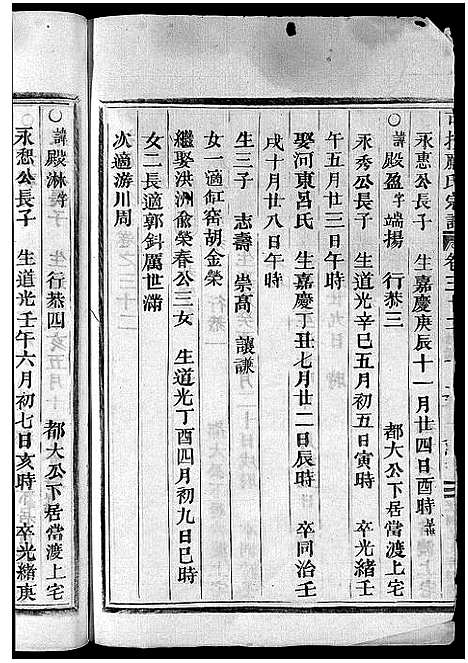 永惠公長子 生嘉慶庚辰十一月廿四日酉時
○諱殿盈字端揚 行恭三 都大公下居當渡上宅
永秀公長子 生道光辛巳五月初五日寅時 卒光緒壬
午五月廿三日午時
娶河東呂氏 生嘉慶丁丑七月廿二日辰時 卒同治壬
戌十月廿八日午時
生三子 志壽 崇高 讓謙
女一適缸窑胡金榮
繼娶洪洲兪榮春公三女 生道光丁酉四月初九日巳時
女二長適郭斜厲世滿
次適游川周
○諱殿淋字 行恭四 都大公下居當渡上宅
永憑公長子 生道光壬午六月初七日亥時 卒光緒庚